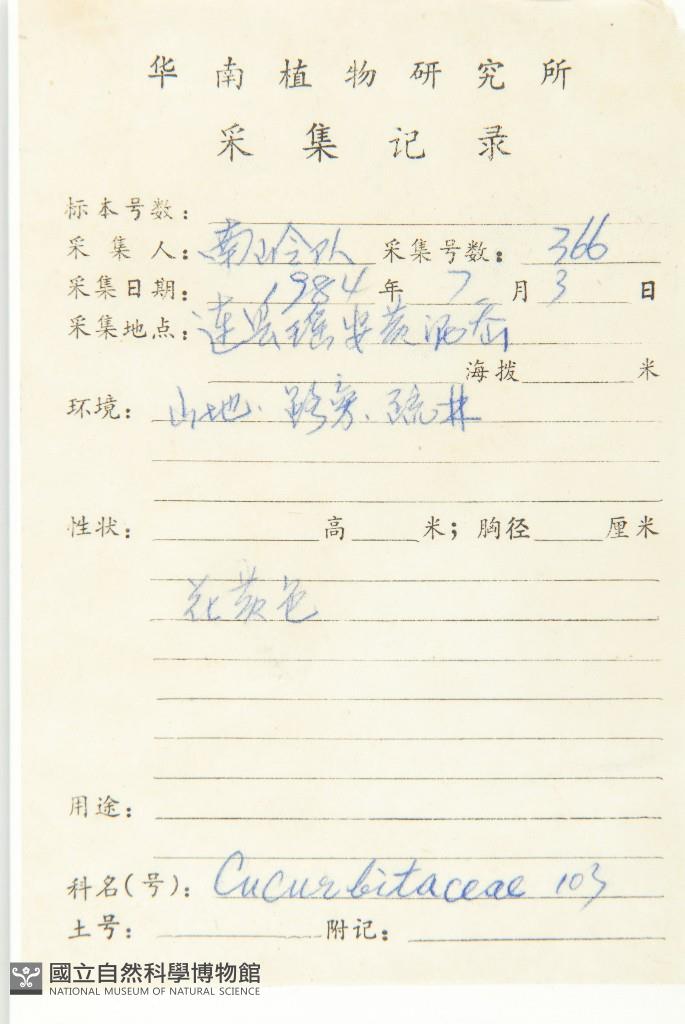 华南植物研究所
采集记录
标本号数:
采集人: 南岭队 采集号数: 366
采集日期: 1984 年 7 月 3 日
采集地点: 连县瑶安黄洞
海拨 米
环境: 山地. 路旁. 疏林
性状: 高 米; 胸径 厘米
花黄色
用途:
科名(号): Cucurbitaceae 103
土号: 附记:
國立自然科學博物館
NATIONAL MUSEUM OF NATURAL SCIENCE